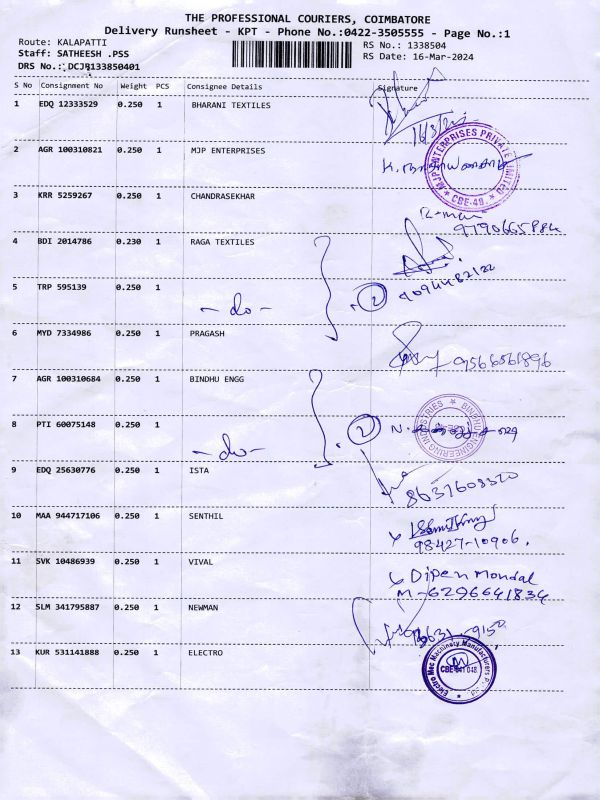 THE PROFESSIONAL COURIERS, COIMBATORE
Delivery Runsheet - KPT - Phone No.:0422-3505555 - Page No.:1
Route: KALAPATTI
RS No.: 1338504
Staff: SATHEESH .PSS
RS Date: 16-Mar-2024
DRS No.: DCJB133850401
S No Consignment No Weight PCS Consignee Details Signature
1 EDQ 12333529 0.250 1 BHARANI TEXTILES
2 AGR 100310821 0.250 1 MJP ENTERPRISES
MJP ENTERPRISES PRIVATE LIMITED
* CBE-48. *
3 KRR 5259267 0.250 1 CHANDRASEKHAR
4 BDI 2014786 0.230 1 RAGA TEXTILES
5 TRP 595139 0.250 1 - do - 2 9094482122
6 MYD 7334986 0.250 1 PRAGASH 9566561896
7 AGR 100310684 0.250 1 BINDHU ENGG
BINDHU ENGINEERING INDUSTRIES
8 PTI 60075148 0.250 1 - do - 2
9 EDQ 25630776 0.250 1 ISTA 8637608320
10 MAA 944717106 0.250 1 SENTHIL
98427-10906.
11 SVK 10486939 0.250 1 VIVAL Dipen Mondal
M-6296641834
12 SLM 341795887 0.250 1 NEWMAN
13 KUR 531141888 0.250 1 ELECTRO
Electro Mec Machinery Manufacturers